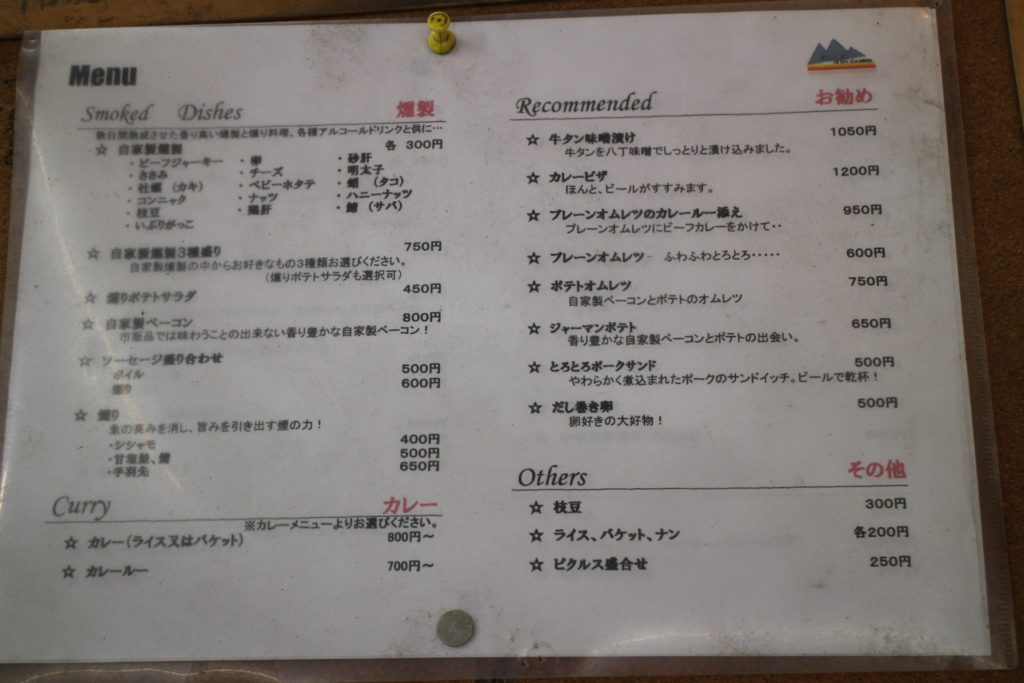 Menu
Smoked Dishes 燻製
数日間熟成させた香り高い燻製と燻り料理、各種アルコールドリンクと供に…
☆ 自家製燻製 各 300円
・ビーフジャーキー ・卵 ・砂肝
・ささみ ・チーズ ・明太子
・牡蠣 (カキ) ・ベビーホタテ ・蛸 (タコ)
・コンニャク ・ナッツ ・ハニーナッツ
・枝豆 ・鶏肝 ・鯖 (サバ)
・いぶりがっこ
☆ 自家製燻製3種盛り 750円
自家製燻製の中からお好きなもの3種類お選びください。
(燻りポテトサラダも選択可)
☆ 燻りポテトサラダ 450円
☆ 自家製ベーコン 800円
市販品では味わうことの出来ない香り豊かな自家製ベーコン!
☆ ソーセージ盛り合わせ
ボイル 500円
燻り 600円
☆ 燻り
魚の臭みを消し、旨みを引き出す煙の力!
・シシャモ 400円
・甘塩鮭、鯖 500円
・手羽先 650円
Curry カレー
※カレーメニューよりお選びください。
☆ カレー(ライス又はバケット) 800円~
☆ カレールー 700円~
Recommended お勧め
☆ 牛タン味噌漬け 1050円
牛タンを八丁味噌でしっとりと漬け込みました。
☆ カレーピザ 1200円
ほんと、ビールがすすみます。
☆ プレーンオムレツのカレールー添え 950円
プレーンオムレツにビーフカレーをかけて・・
☆ プレーンオムレツ ふわふわとろとろ・・・・・ 600円
☆ ポテトオムレツ 750円
自家製ベーコンとポテトのオムレツ
☆ ジャーマンポテト 650円
香り豊かな自家製ベーコンとポテトの出会い。
☆ とろとろポークサンド 500円
やわらかく煮込まれたポークのサンドイッチ。ビールで乾杯!
☆ だし巻き卵 500円
卵好きの大好物!
Others その他
☆ 枝豆 300円
☆ ライス、バケット、ナン 各200円
☆ ピクルス盛合せ 250円